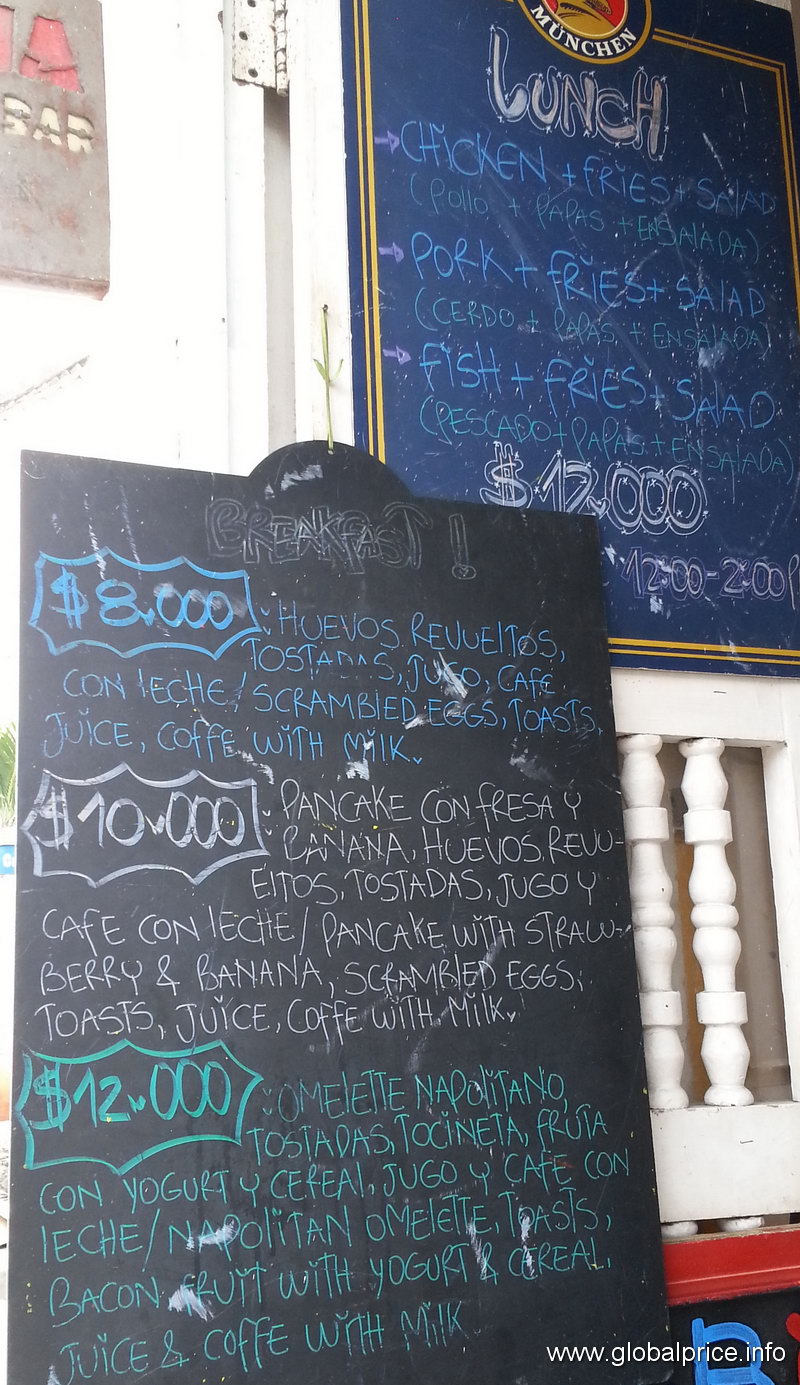 A
BAR
MÜNCHEN
LUNCH
CHICKEN + FRIES + SALAD
(POLLO + PAPAS + ENSALADA)
PORK + FRIES + SALAD
(CERDO + PAPAS + ENSALADA)
FISH + FRIES + SALAD
(PESCADO + PAPAS + ENSALADA)
$12.000
12:00 - 2:00 P
BREAKFAST!
$8.000 : HUEVOS REVUELTOS,
TOSTADAS, JUGO, CAFE
CON LECHE / SCRAMBLED EGGS, TOASTS,
JUICE, COFFE WITH MILK.
$10.000 : PANCAKE CON FRESA Y
BANANA, HUEVOS REVU-
ELTOS, TOSTADAS, JUGO Y
CAFE CON LECHE / PANCAKE WITH STRAW-
BERRY & BANANA, SCRAMBLED EGGS,
TOASTS, JUICE, COFFE WITH MILK.
$12.000 : OMELETTE NAPOLITANO,
TOSTADAS, TOCINETA, FRUTA
CON YOGURT Y CEREAL, JUGO Y CAFE CON
LECHE / NAPOLITAN OMELETTE, TOASTS,
BACON FRUIT WITH YOGURT & CEREAL,
JUICE & COFFE WITH MILK
www.globalprice.info